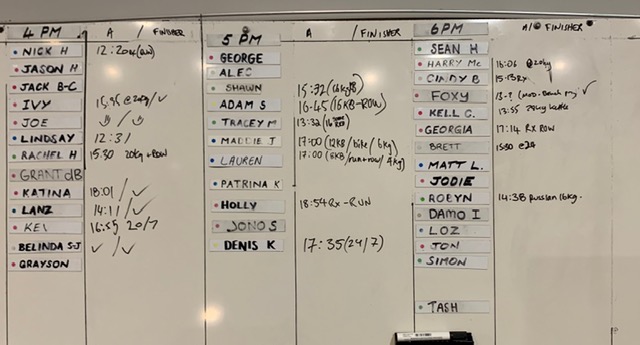 4 PM A / FINISHER
NICK H
JASON H
JACK B-C
IVY
JOE
LINDSAY 12:31
RACHEL H 15:30 20kg + ROW
GRANT dB
KATINA 18:01 / ✓
LANZ 14:11 / ✓
KEL 16:55 20/7
BELINDA S-J ✓ / ✓
GRAYSON
5 PM A / FINISHER
GEORGE
ALEC
SHAWN 15:32 (16kg)
ADAM S 16:45 (16KB-ROW)
TRACEY M 13:32
MADDIE J 17:00 (12KB / bike / 6kg)
LAUREN 17:00 (8KB/run+row/4kg)
PATRINA K
HOLLY 18:54 Rx-RUN
JONO S
DENIS K 17:35 (24/7)
6PM A / FINISHER
SEAN H
HARRY Mc 16:06 @20kg
CINDY B 15:13 Rx
FOXY 13-? ✓
KELL G. 13:55 24kg kettle
GEORGIA 17:14 RX ROW
BRETT 15:30 @24
MATT L.
JODIE
ROBYN 14:38 Russian 16kg.
DAMO I
LOZ
JON
SIMON
TASH